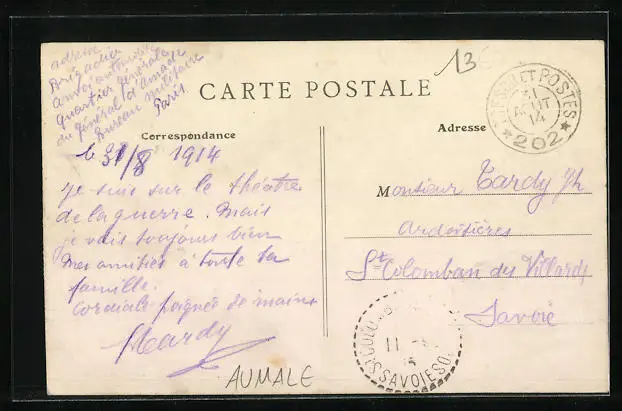 adresse
Brigadier
quartier Général
du Général d'Amade
Bureau militaire
Paris
13
CARTE POSTALE
TRESOR ET POSTES
31
AOUT
14
★ 202 ★
Correspondance
Adresse
le 31/8 1914
Je suis sur le théatre
de la guerre. Mais
je vais toujours bien
Mes amitiés à toute ta
famille.
Cordiale poignée de mains
Tardy
Monsieur Tardy Jh
Ardoisières
St Colomban des Villards
Savoie
11
SAVOIE
AUMALE